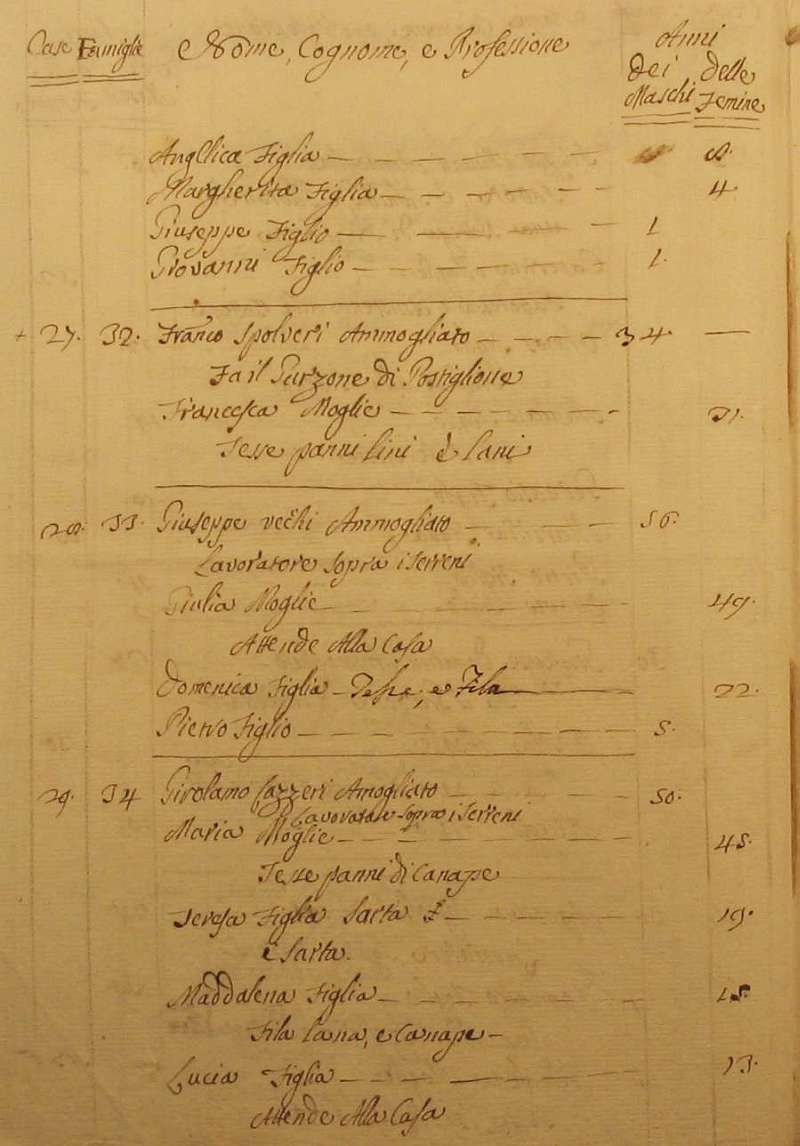 Case Famiglie e Nome, Cognome, e Professione Anni
Dei Delle
Maschi Femine
Anglica Figlia 8.
Margherita Figlia 4.
Giuseppe Figlio 1
Giovanni Figlio 1.
+ 27. 32. Franco Spolveri Ammogliato 34. —
Fa il Garzone di Postiglione
Francesca Moglie 21.
Tesse panni lini è lani
28. 33. Giuseppe vechi Ammogliato 56.
Lavoratore sopra i Terreni
Giulia Moglie 49.
Attende Alla Casa
Domenica Figlia Tesse, e Fila 22.
Pietro Figlio 5.
29. 34 Girolamo Lazzeri Amogliato 50.
Lavoratore sopra i Terreni
Maria Moglie 45.
Tesse panni di Canape
Teresa Figlia Sarta 19.
è Sarta.
Maddalena Figlia 15.
Fila lana, e Canape
Lucia Figlia 13.
Attende Alla Casa